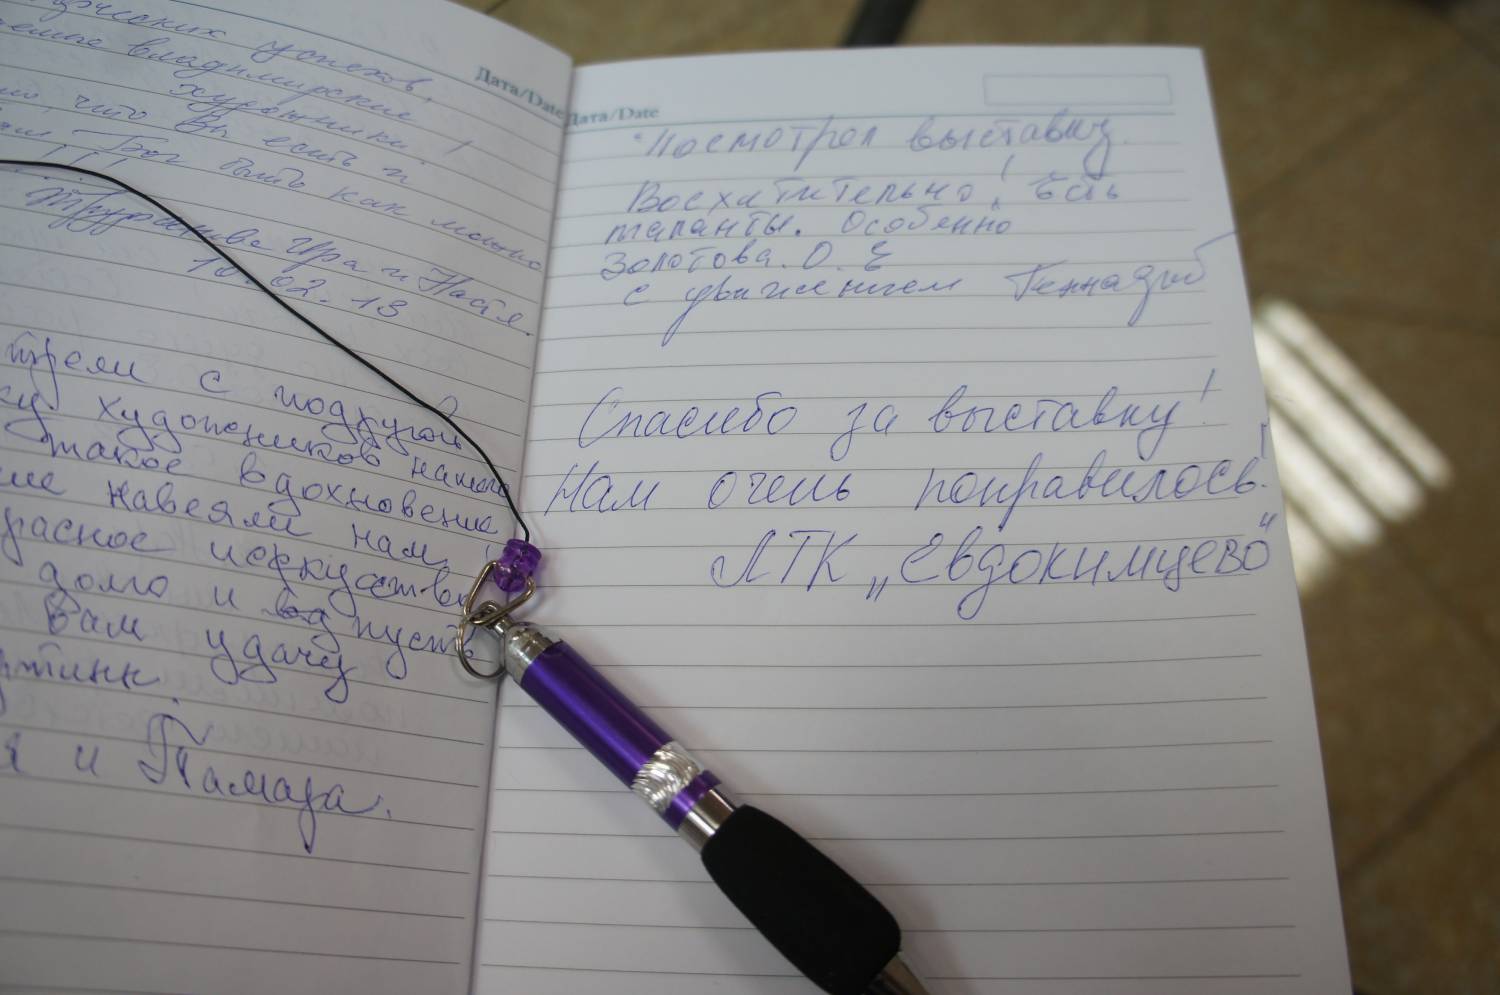 Дата/Date
успехов,
владимирские
художники!
что Вы есть и
Бог быть как можно
! ! !
Ира и Настя.
10.02.13
трели с подругой
ку художников нашего
такое вдохновение
навеяли нам,
расное искусство
долго и пусть
Вам удачу
ртинк.
я и Тамара.
Дата/Date
Посмотрел выставку.
Восхитительно! Есть
таланты. Особенно
Золотова. О. Е
с уважением Геннадий
Спасибо за выставку!
Нам очень понравилось!
ЛТК „Евдокимцево"